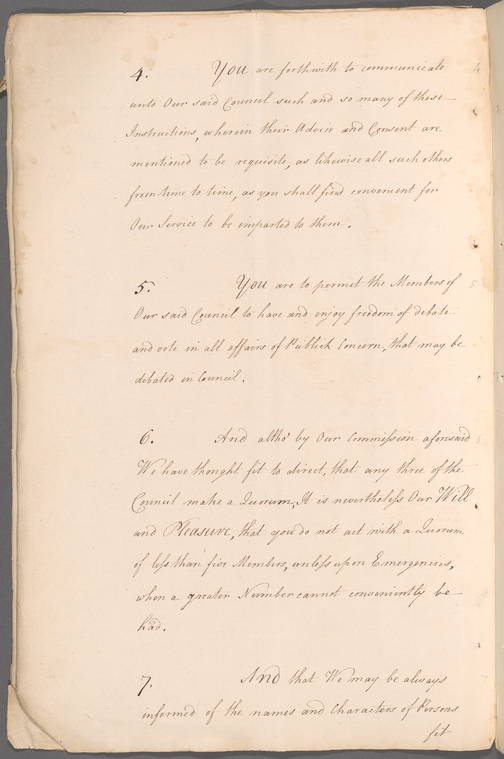 4. You are forthwith to communicate
unto Our said Council such and so many of these
Instructions, wherein their Advice and Consent are
mentioned to be requisite, as likewise all such others
from time to time, as you shall find convenient for
Our Service to be imparted to them.
5. You are to permit the Members of
Our said Council to have and enjoy freedom of debate
and vote in all affairs of Publick Concern, that may be
debated in Council.
6. And altho' by Our Commission aforesaid
We have thought fit to direct, that any three of the
Council make a Quorum, It is nevertheless Our Will
and Pleasure, that you do not act with a Quorum
of less than five Members, unless upon Emergencies,
when a greater Number cannot conveniently be
had.
7. And that We may be always
informed of the names and Characters of Persons
fit